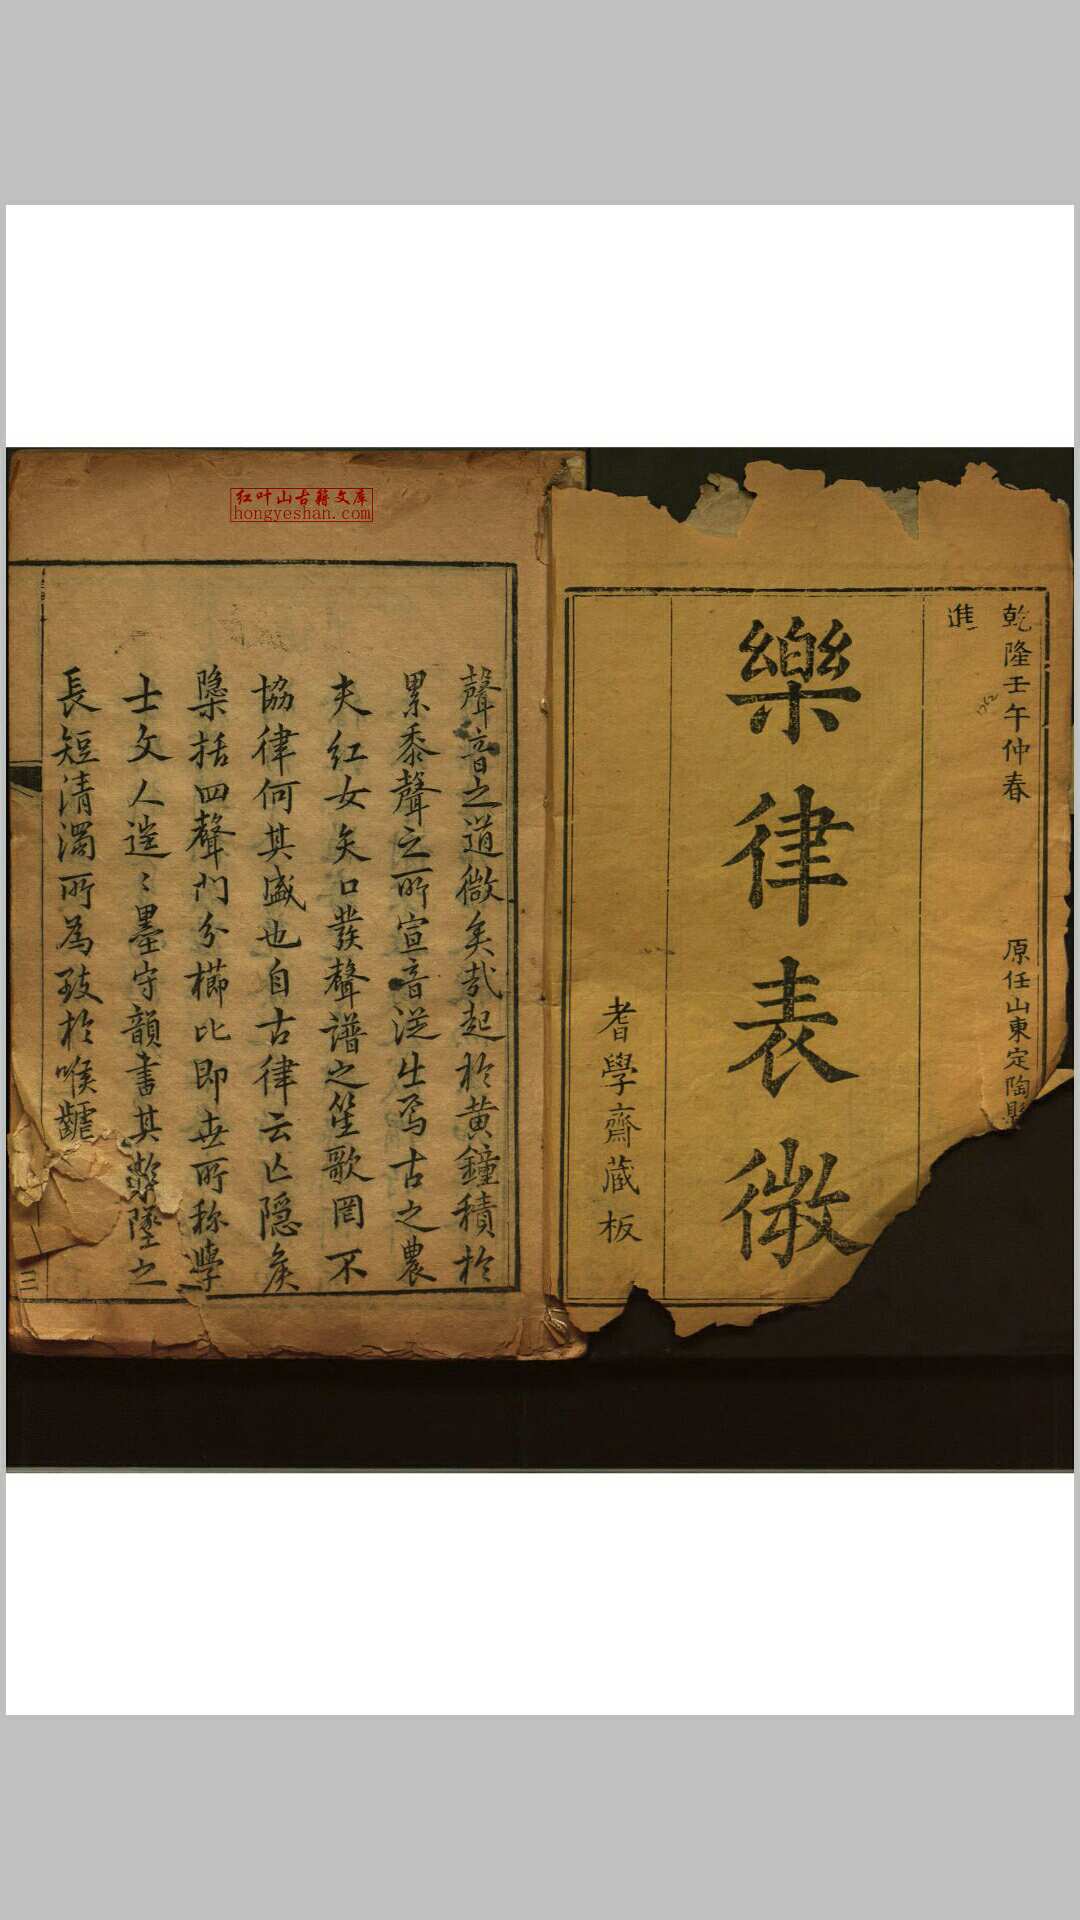 红叶山古籍文库
hongyeshan.com
乾隆壬午仲春 原任山東定陶縣
進
1762
樂律表微
耆學齋藏板
聲音之道微矣哉起於黄鐘積於
累黍聲之所宣音從生焉古之農
夫紅女矢口發聲譜之笙歌罔不
協律何其盛也自古律云亡隱矦
檃括四聲門分櫛比即世所称學
士文人遂〻墨守韻書其㪍墜之
長短清濁所為致於喉齶
三